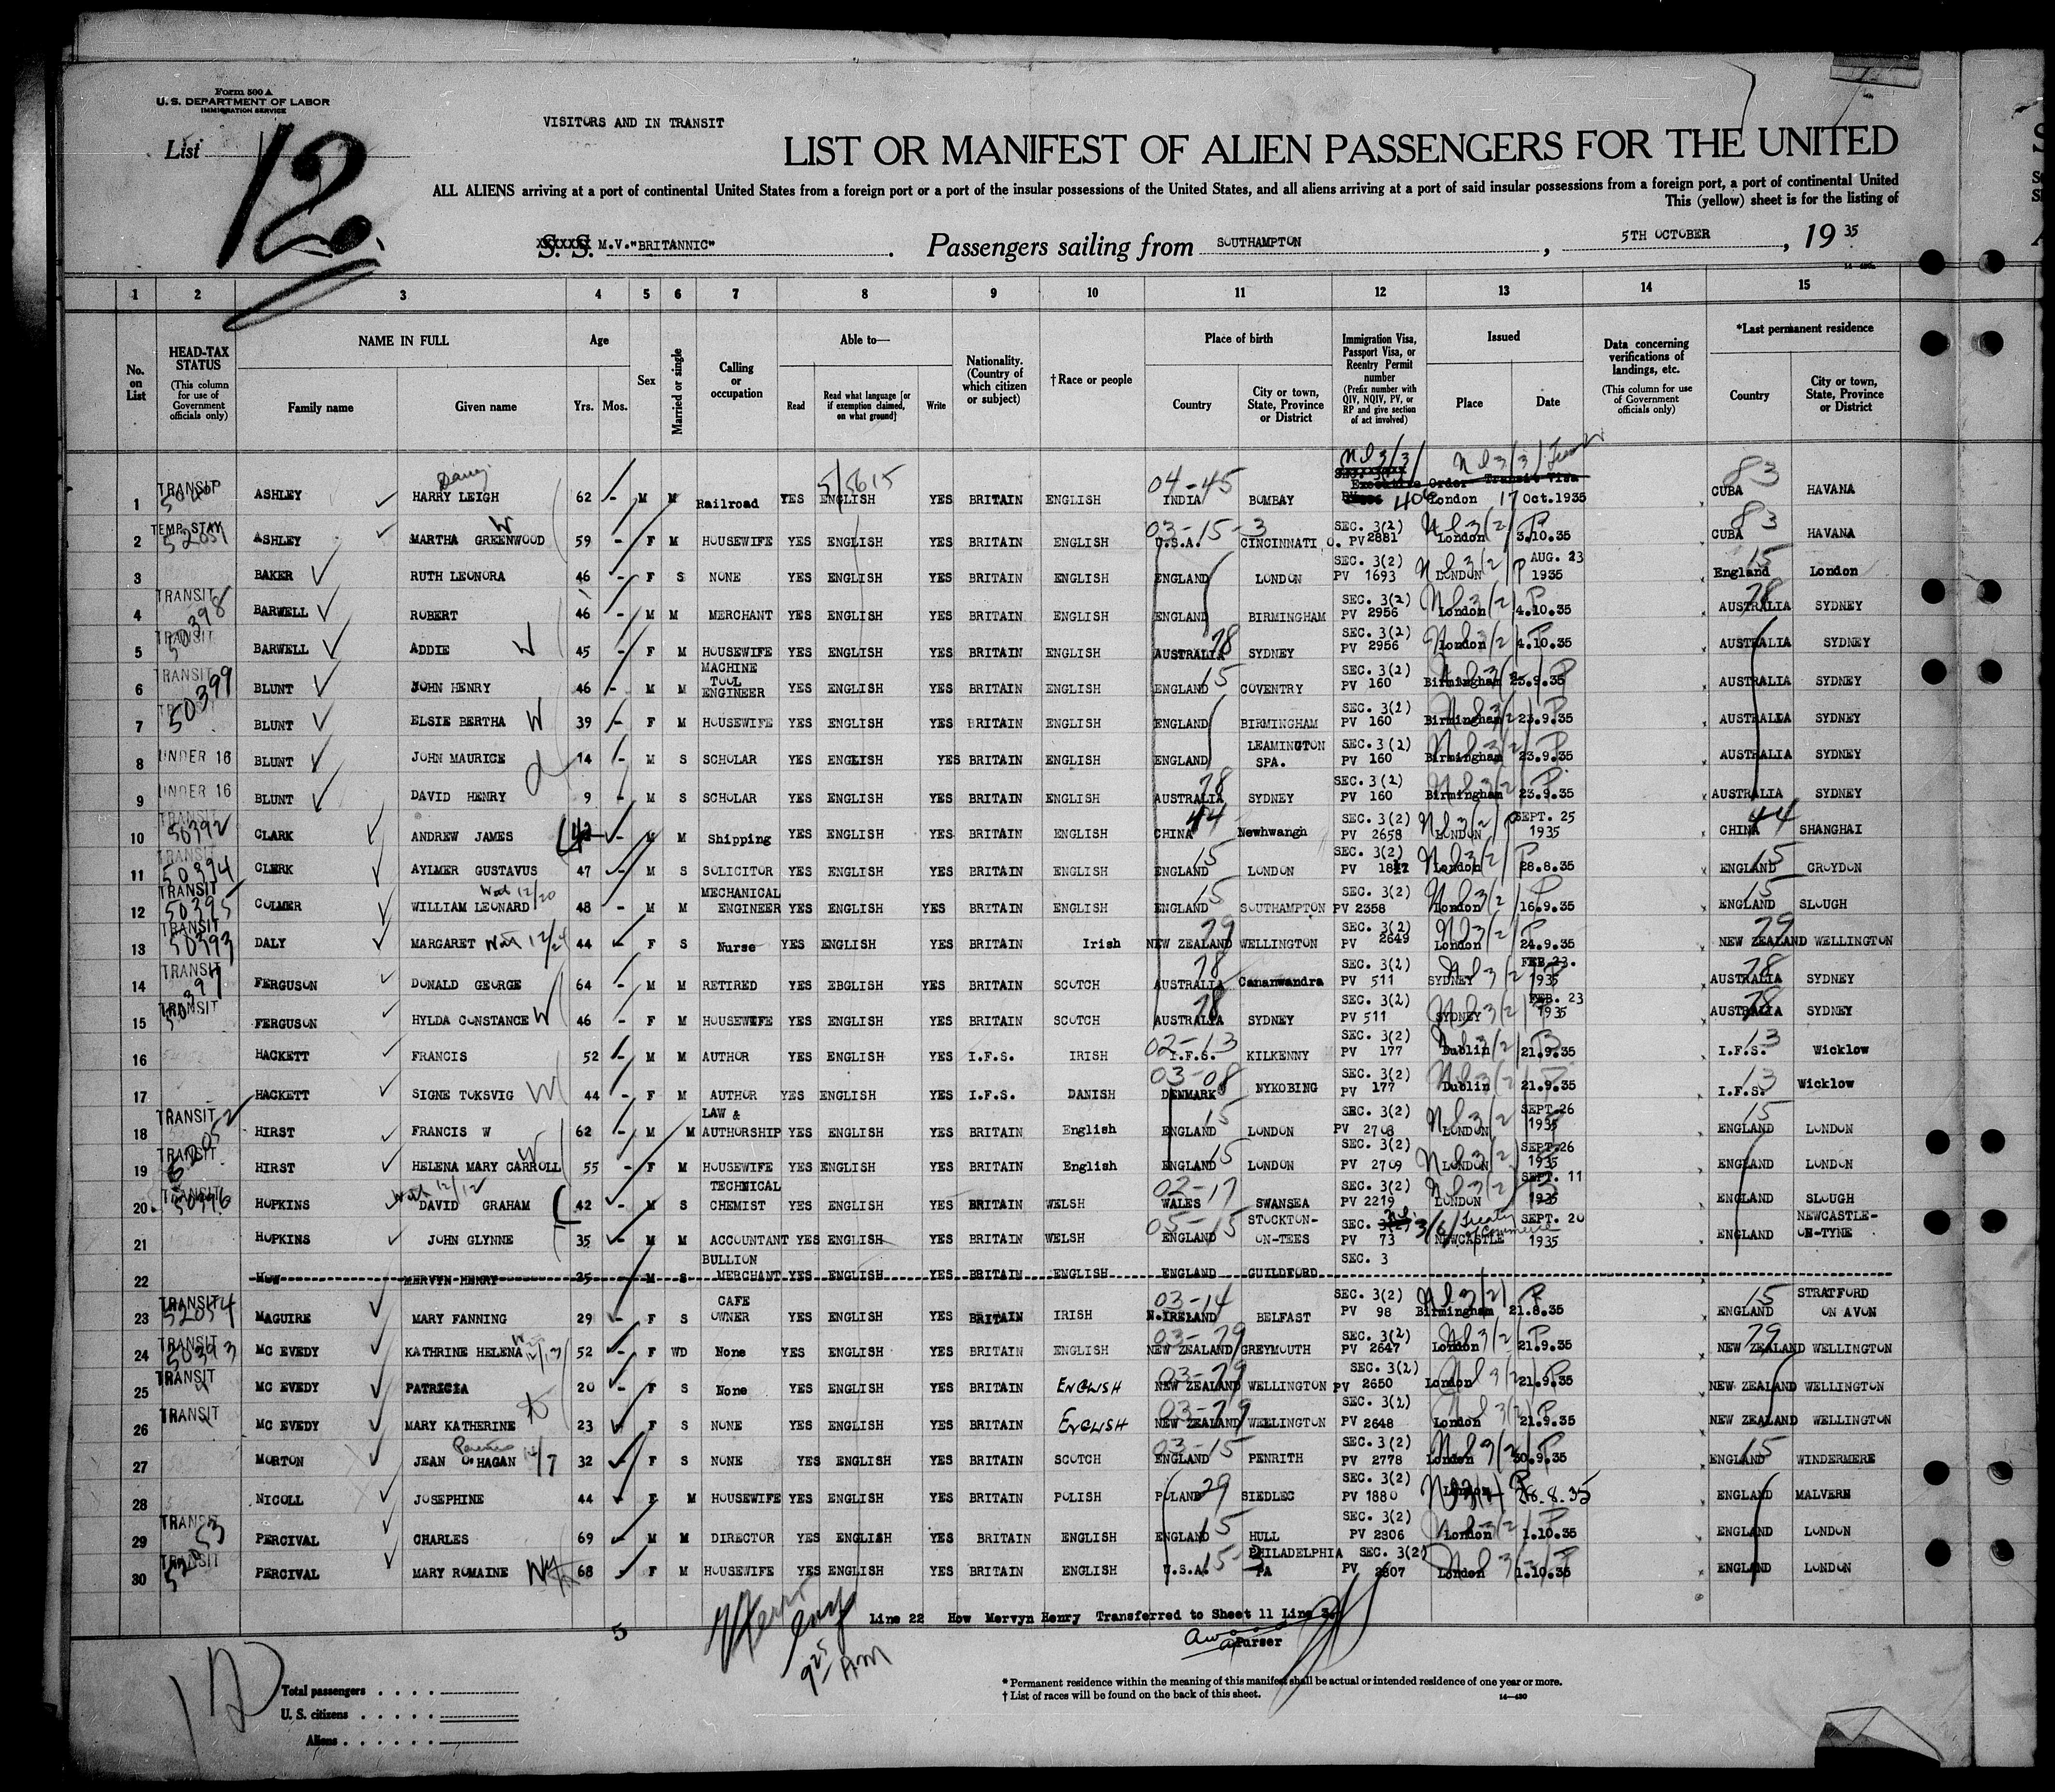 Form 500 A
U. S. DEPARTMENT OF LABOR
IMMIGRATION SERVICE
List 12.
VISITORS AND IN TRANSIT
LIST OR MANIFEST OF ALIEN PASSENGERS FOR THE UNITED
ALL ALIENS arriving at a port of continental United States from a foreign port or a port of the insular possessions of the United States, and all aliens arriving at a port of said insular possessions from a foreign port, a port of continental United
This (yellow) sheet is for the listing of
S. S. M.V."BRITANNIC" . Passengers sailing from SOUTHAMPTON , 5TH OCTOBER , 19 35
1 2 3 4 5 6 7 8 9 10 11 12 13 14 15
No. on List
HEAD-TAX STATUS (This column for use of Government officials only)
NAME IN FULL Family name Given name
Age Yrs. Mos.
Sex
Married or single
Calling or occupation
Able to— Read Read what language [or if exemption claimed, on what ground] Write
Nationality. (Country of which citizen or subject)
†Race or people
Place of birth Country City or town, State, Province or District
Immigration Visa, Passport Visa, or Reentry Permit number (Prefix number with QIV, NQIV, PV, or RP and give section of act involved)
Issued Place Date
Data concerning verifications of landings, etc. (This column for use of Government officials only)
*Last permanent residence Country City or town, State, Province or District
1 TRANSIT ASHLEY HARRY LEIGH 62 - M M Railroad YES ENGLISH YES BRITAIN ENGLISH 04-45 INDIA BOMBAY Executive Order Transit Visa 406 London 17 Oct.1935 83 CUBA HAVANA
2 TEMP. STAY 52051 ASHLEY MARTHA GREENWOOD W 59 - F M HOUSEWIFE YES ENGLISH YES BRITAIN ENGLISH 03-15-3 U.S.A. CINCINNATI O. SEC. 3(2) PV 2881 London 3.10.35 83 CUBA HAVANA
3 BAKER RUTH LEONORA 46 - F S NONE YES ENGLISH YES BRITAIN ENGLISH ENGLAND LONDON SEC. 3(2) PV 1693 LONDON AUG. 23 1935 15 England London
4 TRANSIT 50398 BARWELL ROBERT 46 - M M MERCHANT YES ENGLISH YES BRITAIN ENGLISH ENGLAND BIRMINGHAM SEC. 3(2) PV 2956 London 4.10.35 78 AUSTRALIA SYDNEY
5 TRANSIT BARWELL ADDIE W 45 - F M HOUSEWIFE YES ENGLISH YES BRITAIN ENGLISH 78 AUSTRALIA SYDNEY SEC. 3(2) PV 2956 London 4.10.35 AUSTRALIA SYDNEY
6 TRANSIT 50399 BLUNT JOHN HENRY 46 - M M MACHINE TOOL ENGINEER YES ENGLISH YES BRITAIN ENGLISH 15 ENGLAND COVENTRY SEC. 3(2) PV 160 Birmingham 23.9.35 AUSTRALIA SYDNEY
7 BLUNT ELSIE BERTHA W 39 - F M HOUSEWIFE YES ENGLISH YES BRITAIN ENGLISH ENGLAND BIRMINGHAM SEC. 3(2) PV 160 Birmingham 23.9.35 AUSTRALIA SYDNEY
8 UNDER 16 BLUNT JOHN MAURICE 14 - M S SCHOLAR YES ENGLISH YES BRITAIN ENGLISH ENGLAND LEAMINGTON SPA. SEC. 3(2) PV 160 Birmingham 23.9.35 AUSTRALIA SYDNEY
9 UNDER 16 BLUNT DAVID HENRY 9 - M S SCHOLAR YES ENGLISH YES BRITAIN ENGLISH 78 AUSTRALIA SYDNEY SEC. 3(2) PV 160 Birmingham 23.9.35 AUSTRALIA SYDNEY
10 TRANSIT 50392 CLARK ANDREW JAMES 42 - M M Shipping YES ENGLISH YES BRITAIN ENGLISH 44 CHINA Newhwangh SEC. 3(2) PV 2658 LONDON SEPT. 25 1935 44 CHINA SHANGHAI
11 TRANSIT 50394 CLERK AYLMER GUSTAVUS 47 - M S SOLICITOR YES ENGLISH YES BRITAIN ENGLISH 15 ENGLAND LONDON SEC. 3(2) PV London 28.8.35 15 ENGLAND CROYDON
12 TRANSIT 50395 COLMER WILLIAM LEONARD 12/20 48 - M M MECHANICAL ENGINEER YES ENGLISH YES BRITAIN ENGLISH 15 ENGLAND SOUTHAMPTON SEC. 3(2) PV 2358 London 16.9.35 15 ENGLAND SLOUGH
13 TRANSIT 50393 DALY MARGARET 12/24 44 - F S Nurse YES ENGLISH YES BRITAIN Irish 79 NEW ZEALAND WELLINGTON SEC. 3(2) PV 2649 London 24.9.35 79 NEW ZEALAND WELLINGTON
14 TRANSIT 50397 FERGUSON DONALD GEORGE 64 - M M RETIRED YES EBGLISH YES BRITAIN SCOTCH 78 AUSTRALIA Cananwandra SEC. 3(2) PV 511 SYDNEY FEB. 23. 1935 78 AUSTRALIA SYDNEY
15 TRANSIT FERGUSON HYLDA CONSTANCE W 46 - F M HOUSEWIFE YES ENGLISH YES BRITAIN SCOTCH 78 AUSTRALIA SYDNEY SEC. 3(2) PV 511 SYDNEY FEB. 23 1935 78 AUSTRALIA SYDNEY
16 HACKETT FRANCIS 52 - M M AUTHOR YES ENGLISH YES I.F.S. IRISH 02-13 I.F.S. KILKENNY SEC. 3(2) PV 177 Dublin 21.9.35 13 I.F.S. Wicklow
17 HACKETT SIGNE TOKSVIG W 44 - F M AUTHOR YES ENGLISH YES I.F.S. DANISH 03-08 DENMARK NYKOBING SEC. 3(2) PV 177 Dublin 21.9.35 13 I.F.S. Wicklow
18 TRANSIT 52052 HIRST FRANCIS W 62 - M M LAW & AUTHORSHIP YES ENGLISH YES BRITAIN English 15 ENGLAND LONDON SEC. 3(2) PV 2708 LONDON SEPT 26 1935 15 ENGLAND LONDON
19 TRANSIT HIRST HELENA MARY CARROLL W 55 - F M HOUSEWIFE YES ENGLISH YES BRITAIN English 15 ENGLAND LONDON SEC. 3(2) PV 2709 LONDON SEPT 26 1935 ENGLAND LONDON
20 TRANSIT 50396 HOPKINS DAVID GRAHAM 12/12 42 - M S TECHNICAL CHEMIST YES ENGLISH YES BRITAIN WELSH 02-17 WALES SWANSEA SEC. 3(2) PV 2219 LONDON SEPT. 11 1935 ENGLAND SLOUGH
21 HOPKINS JOHN GLYNNE 35 - M M ACCOUNTANT YES ENGLISH YES BRITAIN WELSH 05-15 ENGLAND STOCKTON-ON-TEES SEC. 3(2) 3/6/ Treaty Commerce PV 73 NEWCASTLE SEPT. 20 1935 ENGLAND NEWCASTLE-ON-TYNE
22 HOW MERVYN HENRY 25 - M S BULLION MERCHANT YES ENGLISH YES BRITAIN ENGLISH ENGLAND GUILDFORD SEC. 3
23 TRANSIT 52054 MAGUIRE MARY FANNING 29 - F S CAFE OWNER YES ENGLISH YES BRITAIN IRISH 03-14 N.IRELAND BELFAST SEC. 3(2) PV 98 Birmingham 21.8.35 15 ENGLAND STRATFORD ON AVON
24 TRANSIT 50393 MC EVEDY KATHRINE HELENA 52 - F WD None YES ENGLISH YES BRITAIN ENGLISH 03-79 NEW ZEALAND GREYMOUTH SEC. 3(2) PV 2647 London 21.9.35 79 NEW ZEALAND WELLINGTON
25 TRANSIT MC EVEDY PATRICIA 20 - F S None YES ENGLISH YES BRITAIN ENGLISH 03-79 NEW ZEALAND WELLINGTON SEC. 3(2) PV 2650 London 21.9.35 NEW ZEALAND WELLINGTON
26 TRANSIT MC EVEDY MARY KATHERINE 23 F S NONE YES ENGLISH YES BRITAIN ENGLISH 03-79 NEW ZEALAND WELLINGTON SEC. 3(2) PV 2648 London 21.9.35 NEW ZEALAND WELLINGTON
27 MORTON JEAN O'HAGAN 32 - F S NONE YES ENGLISH YES BRITAIN SCOTCH 03-15 ENGLAND PENRITH SEC. 3(2) PV 2778 London 30.9.35 15 ENGLAND WINDERMERE
28 NICOLL JOSEPHINE 44 - F M HOUSEWIFE YES ENGLISH YES BRITAIN POLISH POLAND 29 SIEDLEC SEC. 3(2) PV 1880 London 26.8.35 ENGLAND MALVERN
29 TRANSIT 52053 PERCIVAL CHARLES 69 - M M DIRECTOR YES ENGLISH YES BRITAIN ENGLISH 15 ENGLAND HULL SEC. 3(2) PV 2806 London 1.10.35 ENGLAND LONDON
30 TRANSIT PERCIVAL MARY ROMAINE 68 - F M HOUSEWIFE YES ENGLISH YES BRITAIN ENGLISH U.S.A. 15-3 PHILADELPHIA PA SEC. 3(2) PV 2807 London 1.10.35 ENGLAND LONDON
Line 22 How Mervyn Henry Transferred to Sheet 11 Line 3.
Purser
5
9 25 AM
12
Total passengers . . . .
U. S. citizens . . . . .
Aliens . . . . . .
* Permanent residence within the meaning of this manifest shall be actual or intended residence of one year or more.
† List of races will be found on the back of this sheet. 14—430